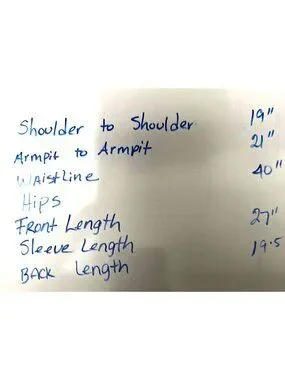 Shoulder to Shoulder 19"
Armpit to Armpit 21"
Waistline 40"
Hips
Front Length 27"
Sleeve Length 19.5
Back Length